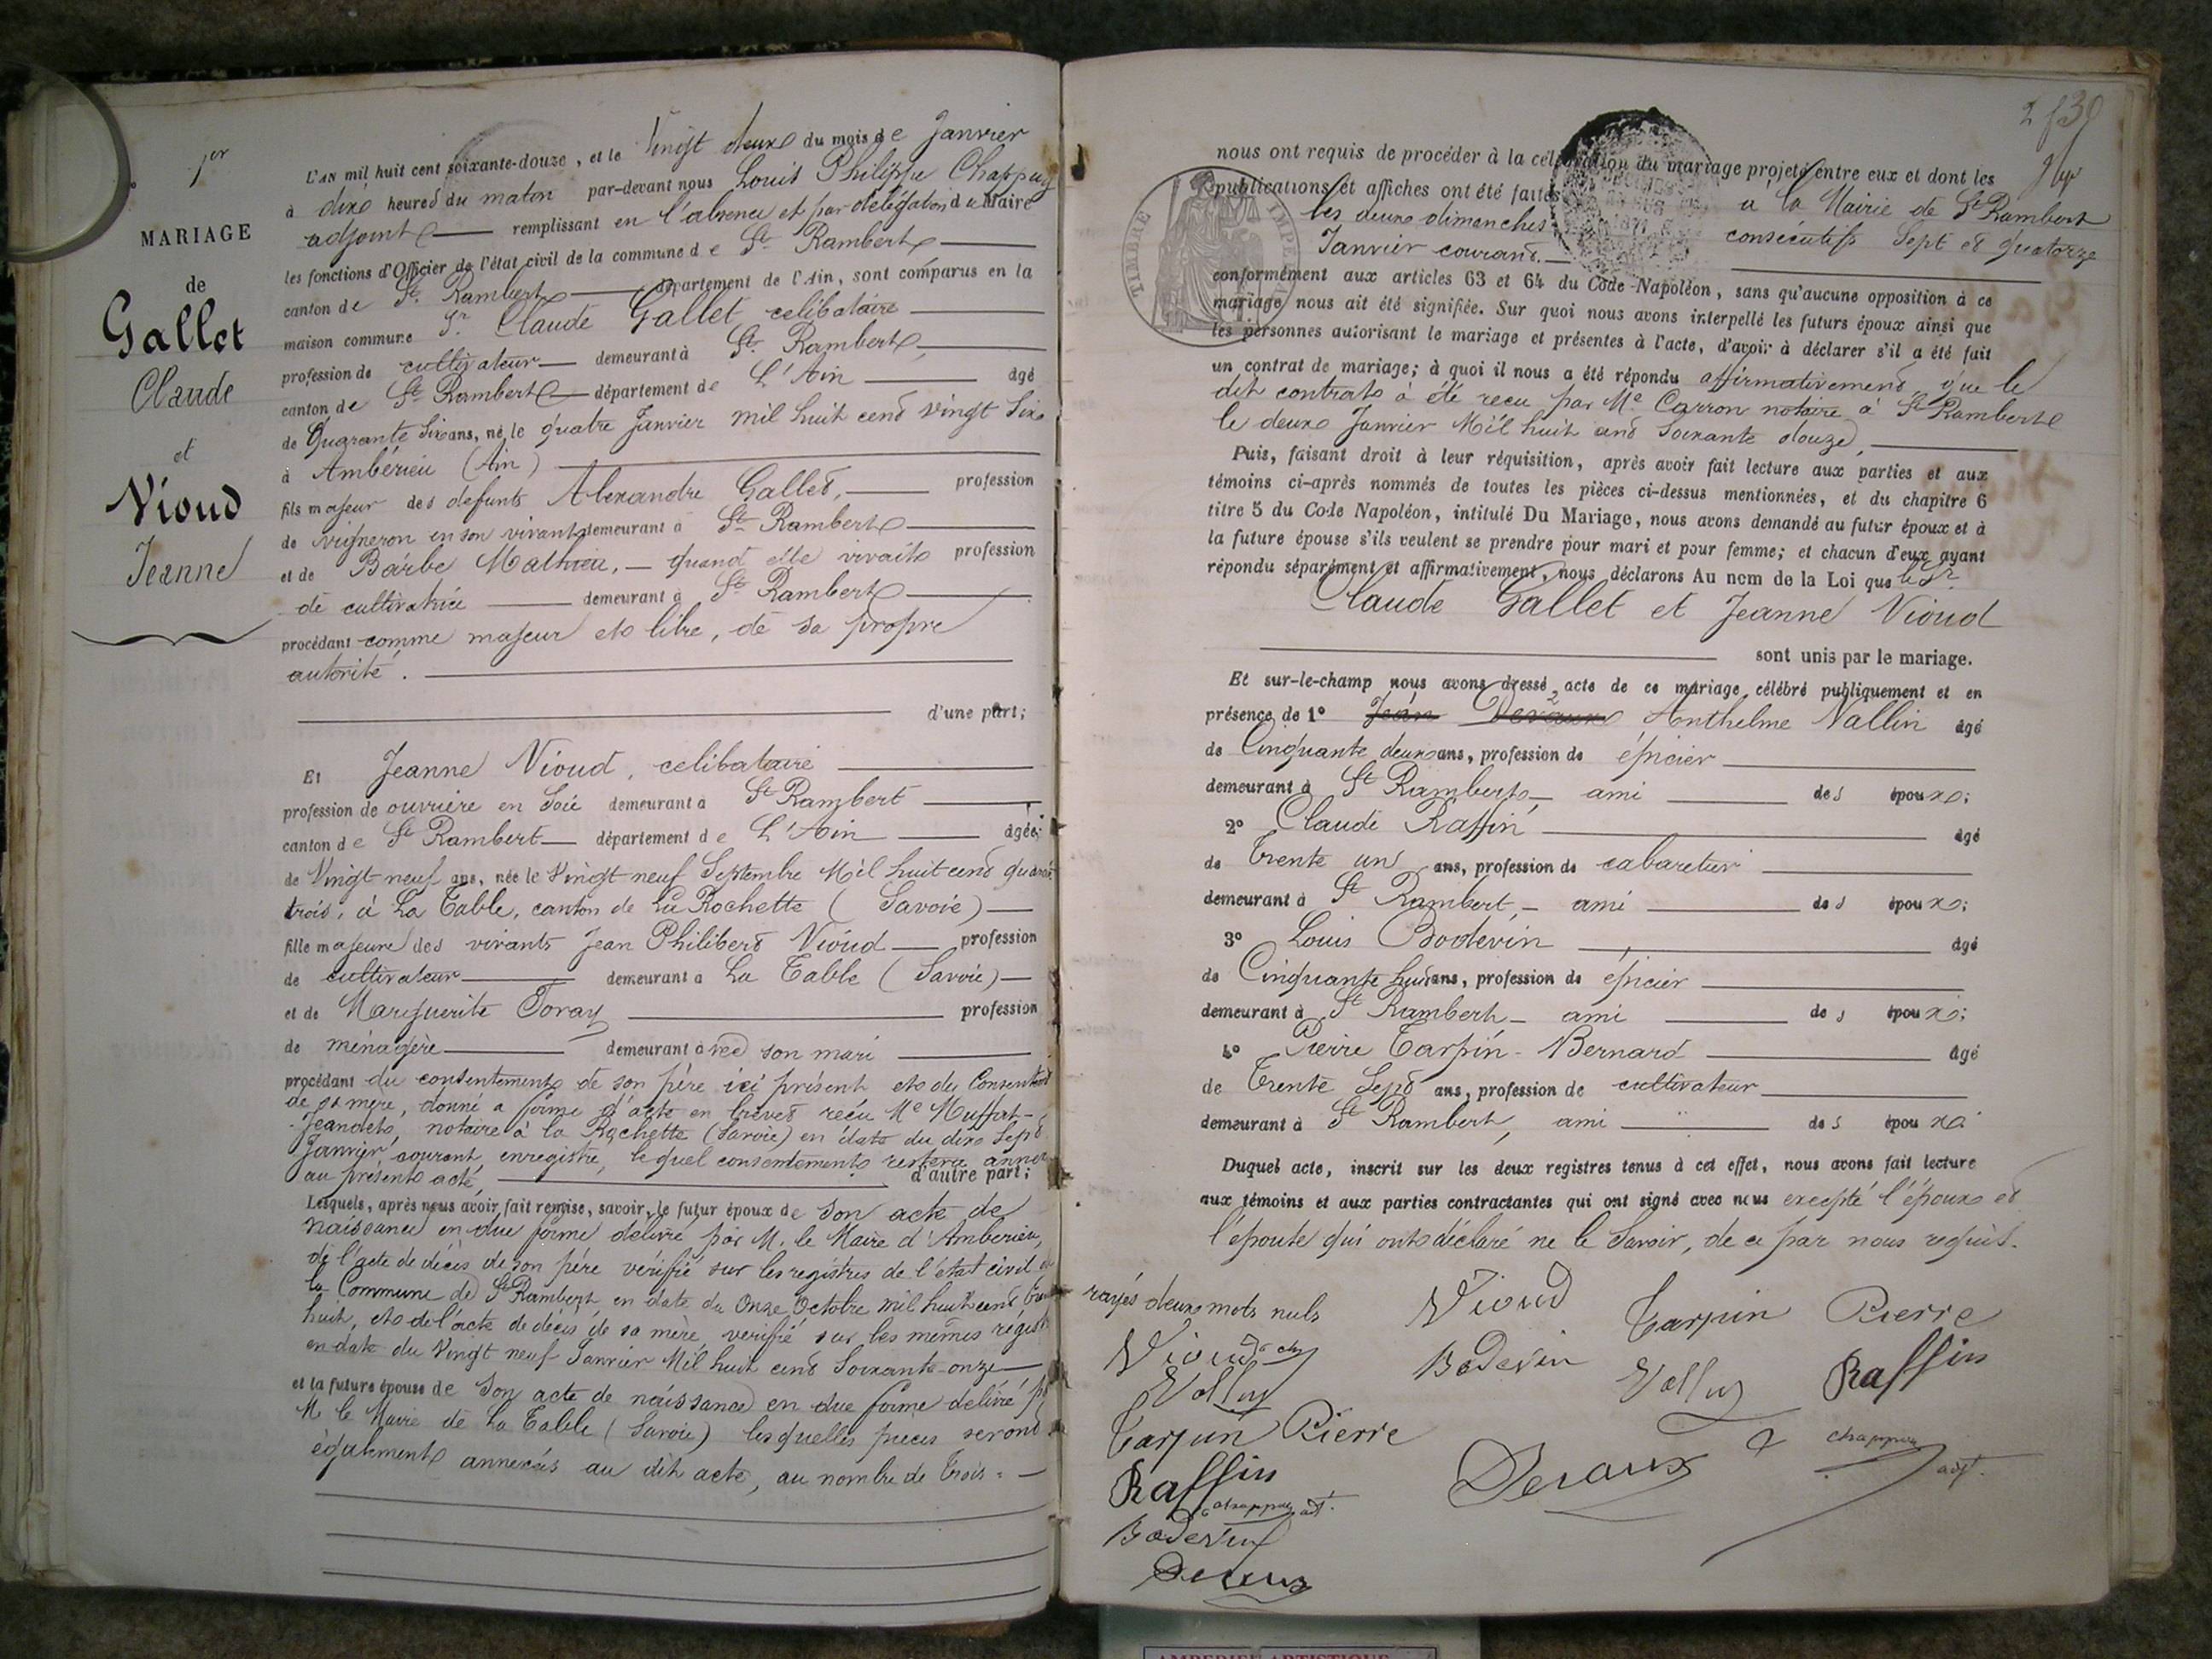 1er
MARIAGE
de
Gallet
Claude
et
Vioud
Jeanne
L'AN mil huit cent soixante-douze, et le Vingt deux du mois de Janvier
à dix heures du maton par-devant nous Louis Philippe Chappuy
adjoint remplissant en l'absence et par délégation du Maire
les fonctions d'Officier de l'état civil de la commune de St. Rambert
canton de St. Rambert département de l'Ain, sont comparus en la
maison commune Sr. Claude Gallet celibataire
profession de cultivateur demeurant à St. Rambert,
canton de St Rambert département de L'Ain âgé
de Quarante six ans, né le quatre Janvier mil huit cent vingt six
à Ambérieu (Ain)
fils majeur des defunts Alexandre Gallet, profession
de vigneron en son vivant demeurant à St. Rambert
et de Barbe Mathieu, quand elle vivait profession
de cultivatrice demeurant à St. Rambert
procédant comme majeur et libre, de sa propre
autorité.
d'une part;
Et Jeanne Vioud, celibataire
profession de ouvrière en soie demeurant à St Rambert
canton de St Rambert département de L'Ain âgée
de Vingt-neuf ans, née le Vingt neuf Septembre Mil huit cent quarante
trois, à La Table, canton de La Rochette (Savoie)
fille majeure des vivants Jean Philibert Vioud profession
de cultivateur demeurant à La Table (Savoie)
et de Marguerite Foray profession
de ménagère demeurant avec son mari
procédant du consentement de son père ici présent et du Consentement
de sa mère, donné a forme d'acte en brevet reçu Me Muffat-
Jeandet, notaire à la Rochette (Savoie) en date du dix sept
Janvier courant, enregistré, lequel consentement restera annexé
au présent acte, d'autre part;
Lesquels, après nous avoir fait remise, savoir, le futur époux de son acte de
naissance en due forme delivré par M. le Maire d'Amberieu,
de l'acte de décès de son père vérifié sur les registres de l'état civil de
la Commune de St Rambert en date du Onze Octobre mil huit cent trente
huit, et de l'acte de décès de sa mère, vérifié sur les mêmes registres
en date du Vingt neuf Janvier Mil huit cent soixante-onze
et la future épouse de son acte de naissance en due forme delivré par
M. le Maire de La Table (Savoie) lesquelles pièces seront
également annexées au dit acte, au nombre de trois.
2 f 39
nous ont requis de procéder à la célébration du mariage projeté entre eux et dont les
publications et affiches ont été faites à la Mairie de St Rambert
les deux dimanches consécutifs Sept et quatorze
Janvier courant.
TIMBRE IMPÉRIAL
conformément aux articles 63 et 64 du Code-Napoléon, sans qu'aucune opposition à ce
mariage nous ait été signifiée. Sur quoi nous avons interpellé les futurs époux ainsi que
les personnes autorisant le mariage et présentes à l'acte, d'avoir à déclarer s'il a été fait
un contrat de mariage; à quoi il nous a été répondu affirmativement, que le
dit contrat à été recu par Me Carron notaire à St Rambert
le deux Janvier Mil huit cent soixante douze,
Puis, faisant droit à leur réquisition, après avoir fait lecture aux parties et aux
témoins ci-après nommés de toutes les pièces ci-dessus mentionnées, et du chapitre 6
titre 5 du Code Napoléon, intitulé Du Mariage, nous avons demandé au futur époux et à
la future épouse s'ils veulent se prendre pour mari et pour femme; et chacun d'eux ayant
répondu séparément et affirmativement, nous déclarons Au nom de la Loi que le Sr
Claude Gallet et Jeanne Vioud
sont unis par le mariage.
Et sur-le-champ nous avons dressé acte de ce mariage célébré publiquement et en
présence de 1° Jean Devaux Anthelme Vallin âgé
de Cinquante deux ans, profession de épicier
demeurant à St Rambert, ami des époux;
2° Claude Raffin âgé
de Trente un ans, profession de cabaretier
demeurant à St Rambert, ami des époux;
3° Louis Bodevin âgé
de Cinquante huit ans, profession de épicier
demeurant à St Rambert ami des époux;
4° Pierre Tarpin-Bernard âgé
de Trente Sept ans, profession de cultivateur
demeurant à St Rambert, ami des époux
Duquel acte, inscrit sur les deux registres tenus à cet effet, nous avons fait lecture
aux témoins et aux parties contractantes qui ont signé avec nous excepté l'époux et
l'épouse qui ont déclaré ne le Savoir, de ce par nous requis.
rayés deux mots nuls
Vioud Tarpin Pierre
Vioud Bodevin Vallin Raffin
Vallin
Tarpin Pierre
Devaux chappuy adjt.
Raffin
chappuy adt.
Bodevin
Devaux
AMBERIEU ARTISTIQUE